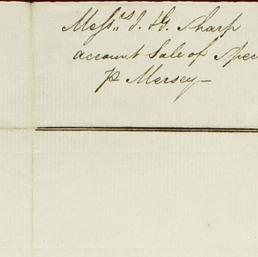 Mess.rs J. & G. Sharp
account Sale of Spec
p Mersey —